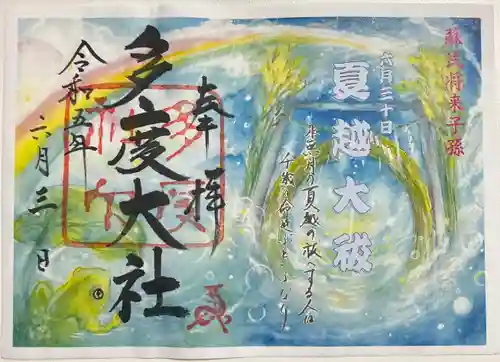 蘇民将来子孫
六月三十日
夏越大祓
水無月の夏越の祓へする人は
千歳の命延ぶといふなり
奉拝
多度大社
令和五年
六月三日